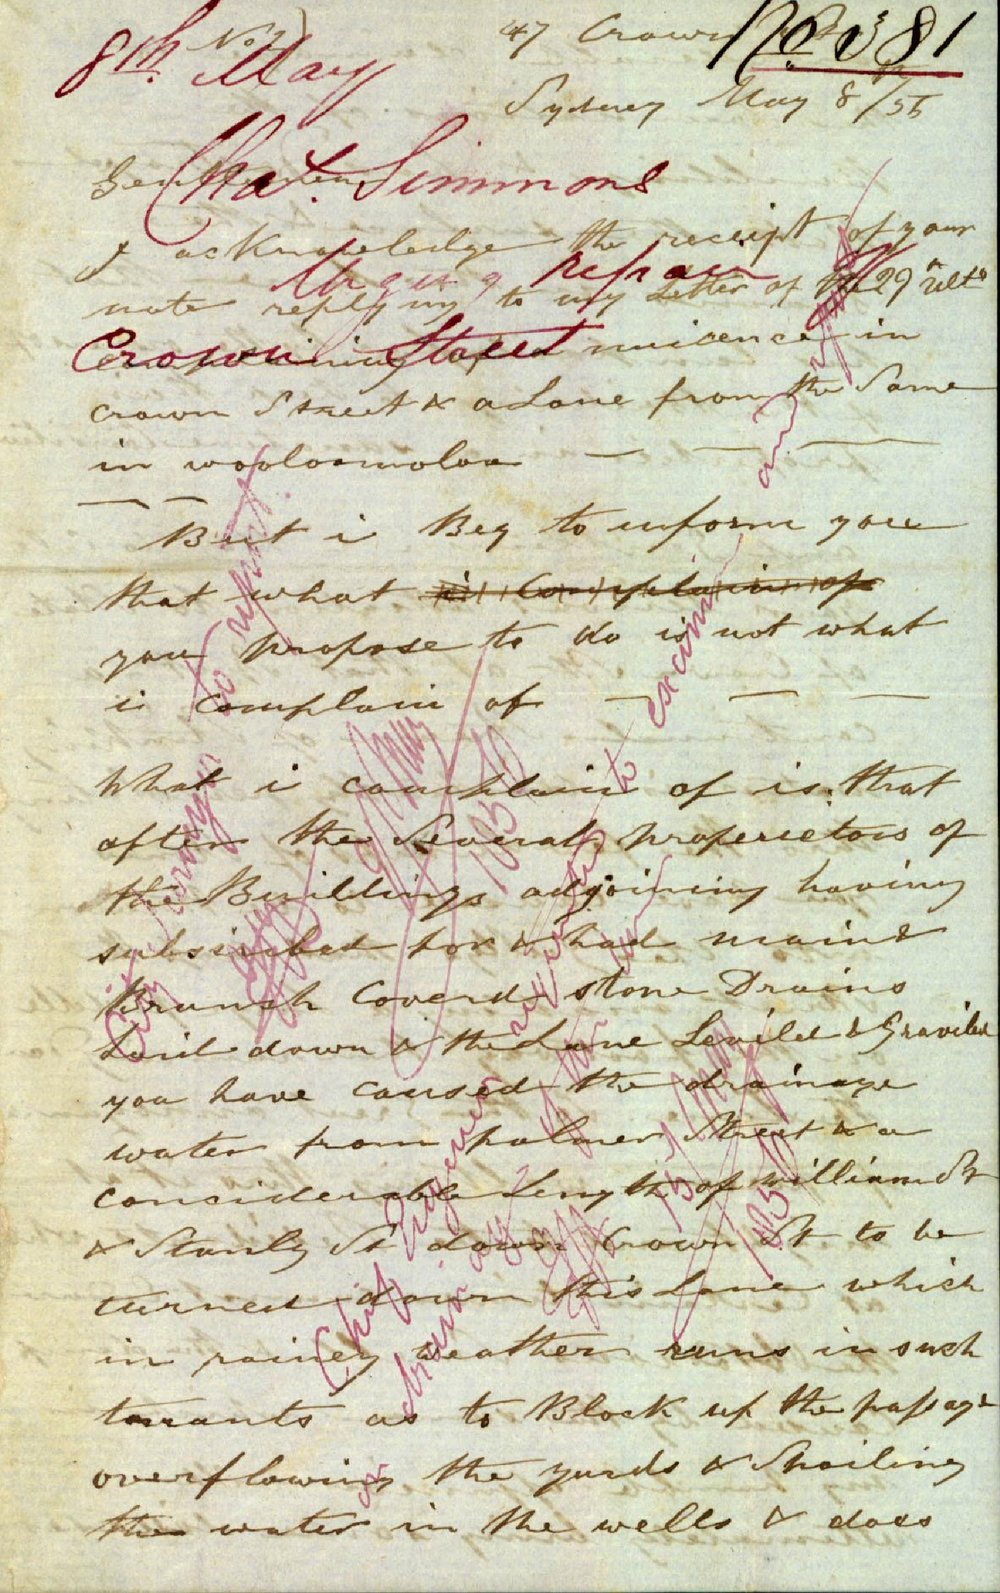 8th May
No 2
47 Crown St
12.0381
Sydney May 8th/56
Gentlemen
Chas. Simmons
I acknowledge the receipt of your
Urging repair
note replying to my Letter of the 29th ulto
Crown Street
complaining of a nuicence in
crown Street & a Lane from the Same
in wooloomoloo
But i Beg to inform you
that what i Complain of
you propose to do is not what
i complain of
What i complain of is that
after the Several properietors of
the Buildings adjoining having
subscribed for & had main &
Branch Coverd stone Drains
Laid down & the Lane Leveld & Graviled
you have caused the drainage
water from palmer Street & a
conciderable Length of william St
& Stanly St down Crown St to be
turned down this Lane which
in rainey weather runs in such
torrants as to Block up the passage
overflowing the yards & Spoiling
the water in the wells & does
City Surveyor to report.
9/May
1856
City Engineer requested to examine and report
15/May
1856